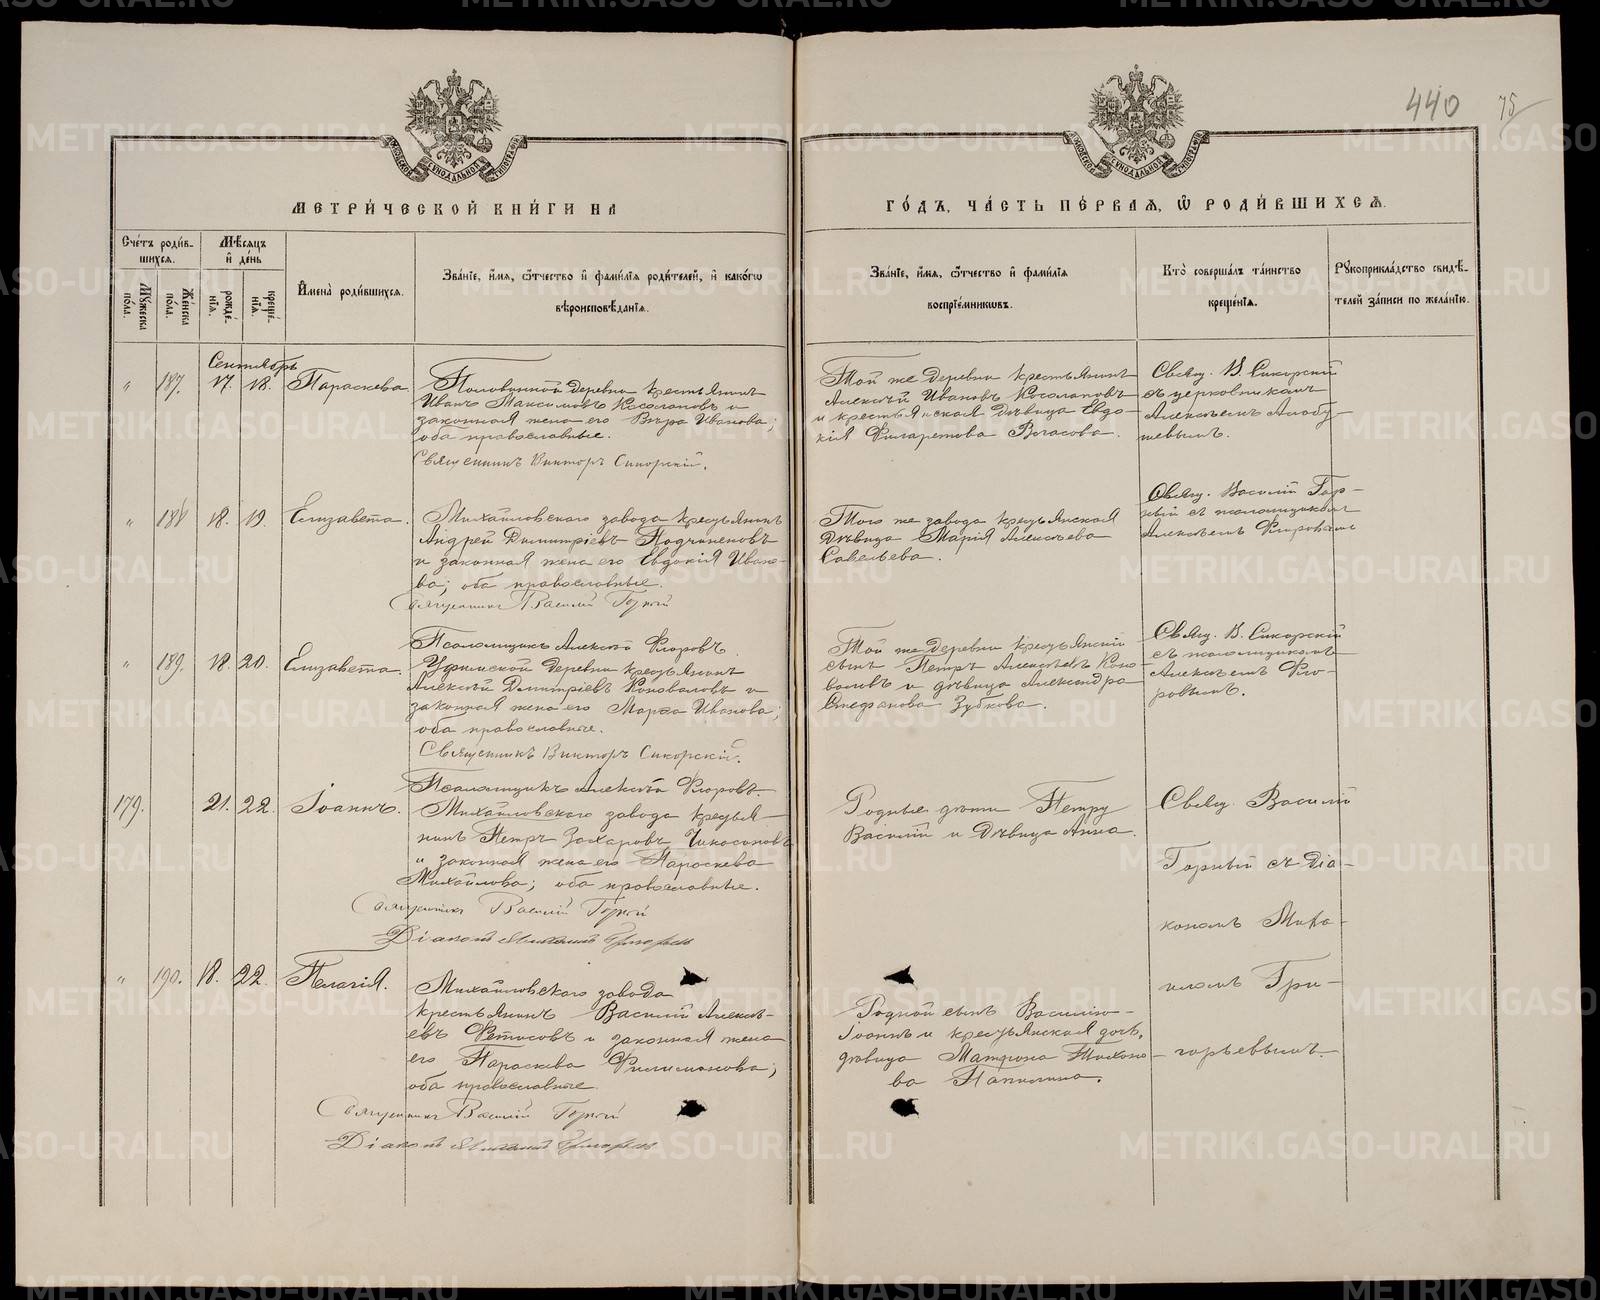 440 75
МЕТРИ́ЧЕСКОЙ КНИ́ГИ НА
ГО́ДЪ, ЧА́СТЬ ПЕ́РВАЯ, Ѡ РОДИ́ВШИХСЯ.
Сче́тъ роди́в-
шихся.
Му́жеска
по́ла.
Же́нска
по́ла.
Мѣ́сяцъ
и де́нь
рожде́-
нїя.
креще́-
нїя.
Имена̀ роди́вшихся.
Зва́нїе, и́мя, ѻ҆́тчество и фами́лїя роди́телей, и како́гѡ
вѣроисповѣ́данїя.
Зва́нїе, и́мя, ѻ҆́тчество и фами́лїя
воспрїе́мниковъ.
Кто̀ соверша́лъ та́инство
креще́нїя.
Рꙋкоприкла́дство свидѣ́-
телей за́писи по жела́нїю.
Сентябрь
" 187. 17. 18. Параскева.
Половинной деревни крестьянинъ
Иванъ Максимовъ Косолаповъ и
законная жена его Вѣра Иванова;
оба православные.
Священникъ Викторъ Сикорскій.
Той же деревни крестьянинъ
Алексѣй Ивановъ Косолаповъ
и крестьянская дѣвица Евдо-
кія Филаретова Власова.
Свящ. В. Сикорскій
съ церковникомъ
Алексѣемъ
" 188 18. 19. Елизавета.
Михайловскаго завода крестьянинъ
Андрей Димитріевъ
и законная жена его Евдокія Ивано-
ва; оба православные.
Священникъ Василій Горный
Псаломщикъ Алексѣй Флоровъ.
Того же завода крестьянская
дѣвица Марія Алексѣева
Савельева.
Свящ. Василій Гор-
ный съ псаломщикомъ
Алексѣемъ Флоровымъ
" 189. 18. 20. Елизавета.
Уфимской деревни крестьянинъ
Алексѣй Димитріевъ Коноваловъ и
законная жена его Марѳа Иванова;
оба православные.
Священникъ Викторъ Сикорскій.
Псаломщикъ Алексѣй Флоровъ.
Той же деревни крестьянскій
сынъ Петръ Алексѣевъ Коно-
валовъ и дѣвица Александра
Стефанова Зубкова.
Свящ. В. Сикорскій
съ псаломщикомъ
Алексѣемъ Фло-
ровымъ.
179. 21. 22. Іоаннъ.
Михайловскаго завода крестья-
нинъ Петръ Захаровъ
и законная жена его Параскева
Михайлова; оба православные.
Священникъ Василій Горный
Діаконъ Михаилъ Григорьевъ
Родные дѣти Петру
Василій и дѣвица Анна.
Свящ. Василій
Горный съ діа-
кономъ Миха-
иломъ Гри-
горьевымъ.
" 190. 18. 22. Пелагія.
Михайловскаго завода
крестьянинъ Василій Алексѣ-
евъ Фетисовъ и законная жена
его Параскева Филимонова;
оба православные
Священникъ Василій Горный
Діаконъ Михаилъ Григорьевъ
Родной сынъ Василію
Іоаннъ и крестьянская дочь,
дѣвица Матрона Тихоно-
ва Папилина.